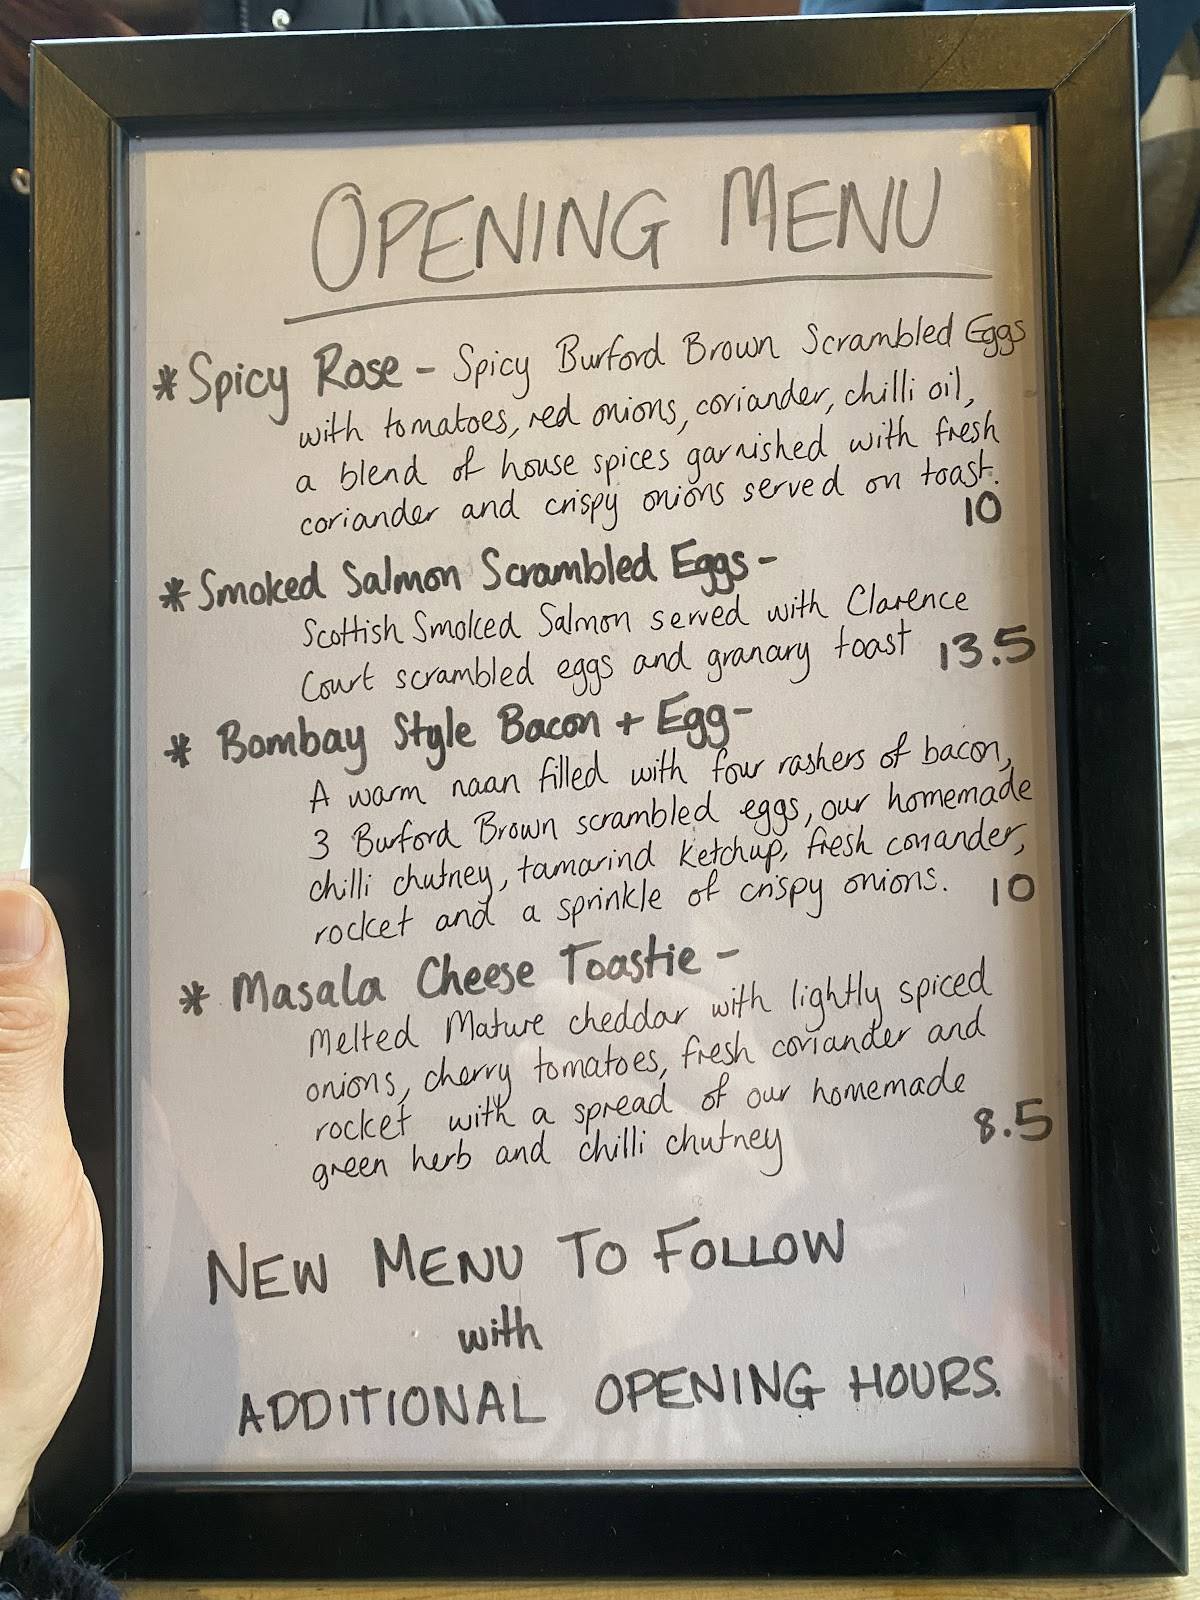 OPENING MENU
* Spicy Rose - Spicy Burford Brown Scrambled Eggs
with tomatoes, red onions, coriander, chilli oil,
a blend of house spices garnished with fresh
coriander and crispy onions served on toast.
10
* Smoked Salmon Scrambled Eggs -
Scottish Smoked Salmon served with Clarence
Court scrambled eggs and granary toast 13.5
* Bombay Style Bacon + Egg -
A warm naan filled with four rashers of bacon,
3 Burford Brown scrambled eggs, our homemade
chilli chutney, tamarind ketchup, fresh coriander,
rocket and a sprinkle of crispy onions. 10
* Masala Cheese Toastie -
Melted Mature cheddar with lightly spiced
onions, cherry tomatoes, fresh coriander and
rocket with a spread of our homemade
green herb and chilli chutney 8.5
NEW MENU TO FOLLOW
with
ADDITIONAL OPENING HOURS.